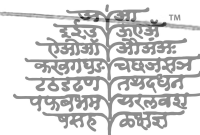 अ आ TM
इ ई उ ऊ ए ऐ
ऐ ओ औ औ अं अः
क ख ग घ ङ च छ ज झ ञ
ट ठ ड ढ ण त थ द ध न
प फ ब भ म य र ल व श
ष स ह ळ क्ष ज्ञ